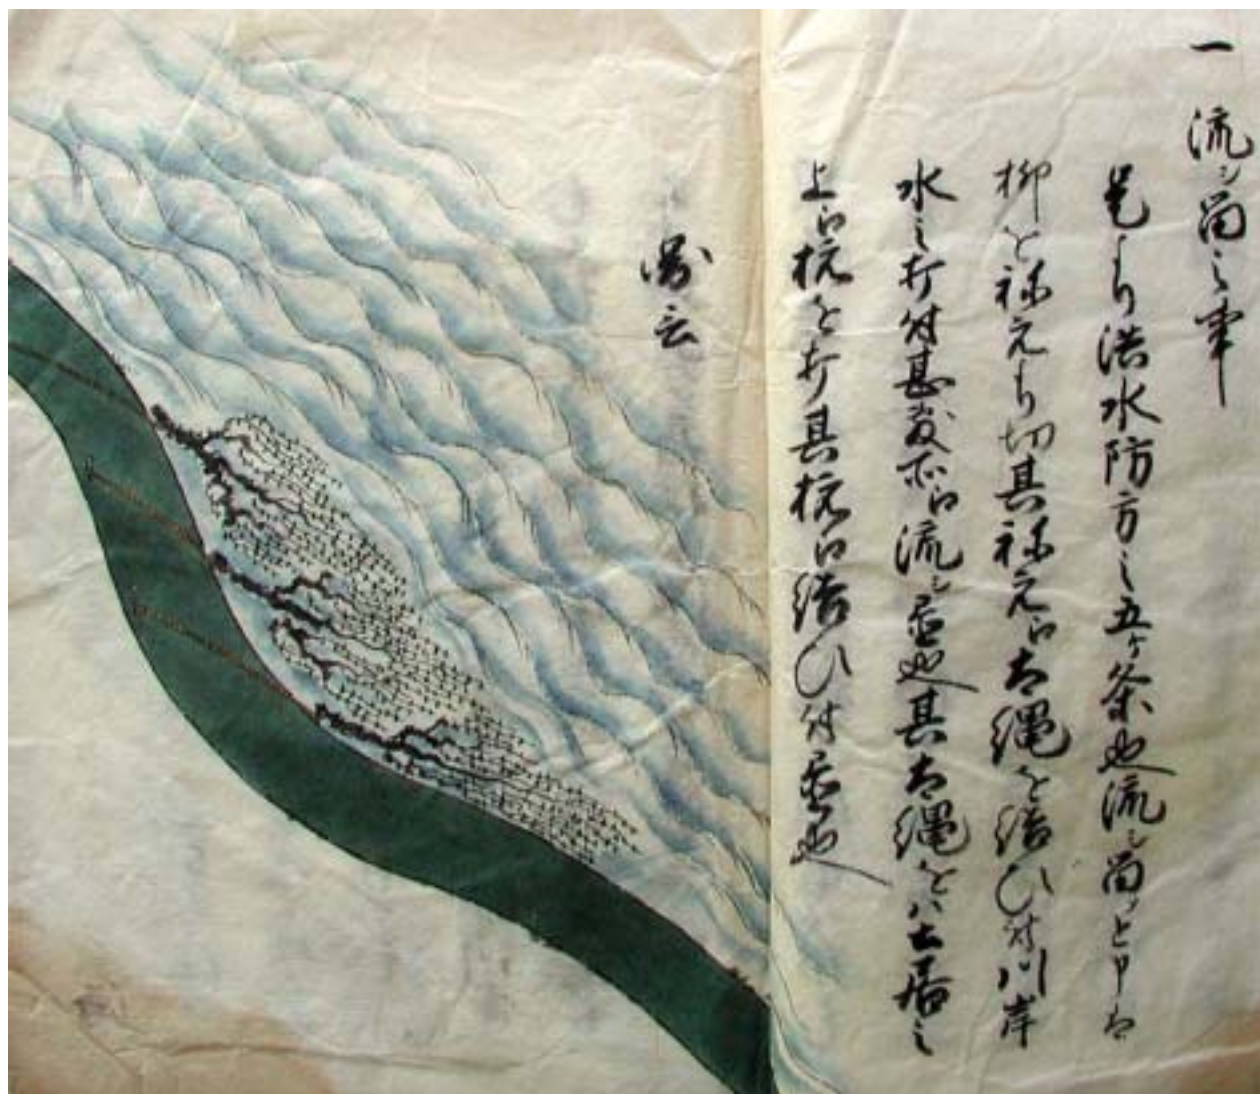 一 流シ留之事
是より洪水防方之五ケ条也流シ留と申ハ
柳を祢元より切其祢元に大縄を結ひ付川岸
水之打付甚敷所に流シ置也其大縄をハ土居之
上に杭を打其杭に結ひ付置也
図云